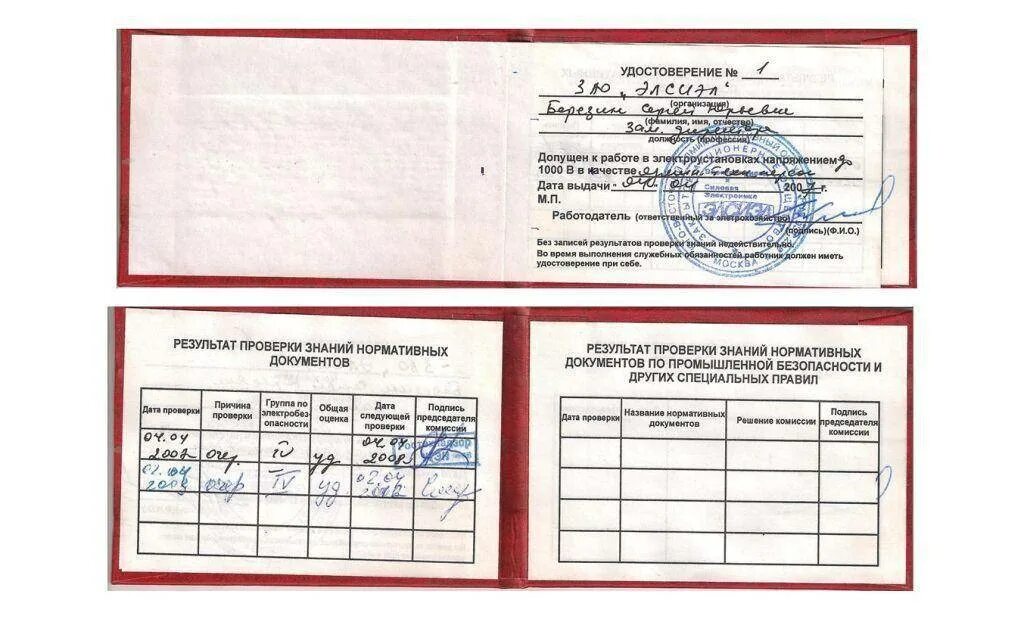 УДОСТОВЕРЕНИЕ № 1
ЗАО "ЭЛСИЭЛ"
(организация)
Березин Сергей Юрьевич
(фамилия, имя, отчество)
Зам. директора
должность (профессия)
Допущен к работе в электроустановках напряжением до
1000 В в качестве
Дата выдачи 04. 04 2007 г.
М.П.
Работодатель (ответственный за элетрохозяйство)
(подпись)(Ф.И.О.)
Без записей результатов проверки знаний недействительно.
Во время выполнения служебных обязанностей работник должен иметь
удостоверение при себе.
Силовая
Электроника
ЭЛСИЭЛ
МОСКВА
РЕЗУЛЬТАТ ПРОВЕРКИ ЗНАНИЙ НОРМАТИВНЫХ
ДОКУМЕНТОВ
Дата проверки
Причина
проверки
Группа по
электробез-
опасности
Общая
оценка
Дата
следующей
проверки
Подпись
председателя
комиссии
04.04
2007 очер. IV уд 04.04
2008
02.04
2008 очер IV уд.
РЕЗУЛЬТАТ ПРОВЕРКИ ЗНАНИЙ НОРМАТИВНЫХ
ДОКУМЕНТОВ ПО ПРОМЫШЛЕННОЙ БЕЗОПАСНОСТИ И
ДРУГИХ СПЕЦИАЛЬНЫХ ПРАВИЛ
Дата проверки
Название нормативных
документов
Решение комиссии
Подпись
председателя
комиссии